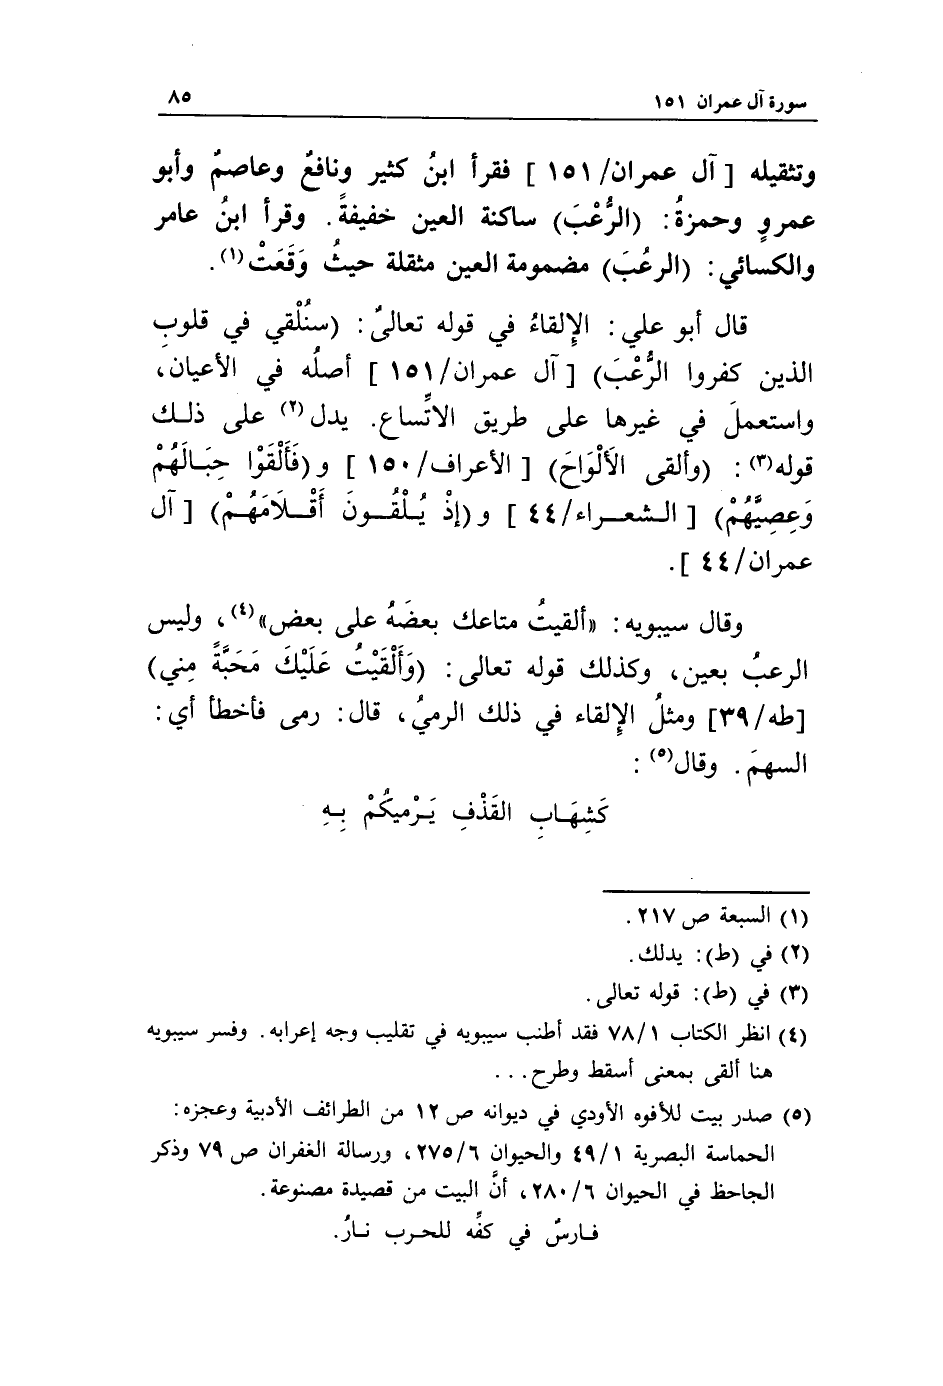 سورة آل عمران ١٥١
٨٥
وتثقيله [ آل عمران/١٥١ ] فقرأ ابنُ كثير ونافعٌ وعاصمٌ وأبو
عمروٍ وحمزةُ: (الرُّعْبَ) ساكنة العين خفيفةً. وقرأ ابنُ عامر
والكسائي: (الرعُبَ) مضمومة العين مثقلة حيثُ وَقَعَتْ(١).
قال أبو علي: الإِلقاءُ في قوله تعالىٰ: (سنُلْقي في قلوبِ
الذين كفروا الرُّعْبَ) [ آل عمران/١٥١ ] أصلُه في الأعيان،
واستعملَ في غيرها على طريق الاتِّساع. يدل(٢) على ذلك
قوله(٣): (وألقى الأَلْوَاحَ) [ الأعراف/١٥٠ ] و(فَأَلْقَوْا حِبَالَهُمْ
وَعِصِيَّهُمْ) [ الشعراء/٤٤ ] و(إذْ يُلْقُونَ أَقْلَامَهُمْ) [ آل
عمران/٤٤ ].
وقال سيبويه: «ألقيتُ متاعك بعضَهُ على بعض»(٤)، وليس
الرعبُ بعين، وكذلك قوله تعالى: (وَأَلْقَيْتُ عَلَيْكَ مَحَبَّةً مِني)
[طه/٣٩] ومثلُ الإِلقاء في ذلك الرميُ، قال: رمى فأخطأ أي:
السهمَ. وقال(٥):
كَشِهَابِ القَذْفِ يَرْميكُمْ بِهِ
(١) السبعة ص ٢١٧.
(٢) في (ط): يدلك.
(٣) في (ط): قوله تعالى.
(٤) انظر الكتاب ٧٨/١ فقد أطنب سيبويه في تقليب وجه إعرابه. وفسر سيبويه
هنا ألقى بمعنى أسقط وطرح...
(٥) صدر بيت للأفوه الأودي في ديوانه ص ١٢ من الطرائف الأدبية وعجزه:
الحماسة البصرية ٤٩/١ والحيوان ٢٧٥/٦، ورسالة الغفران ص ٧٩ وذكر
الجاحظ في الحيوان ٢٨٠/٦، أنَّ البيت من قصيدة مصنوعة.
فارسٌ في كفِّه للحرب نارُ.